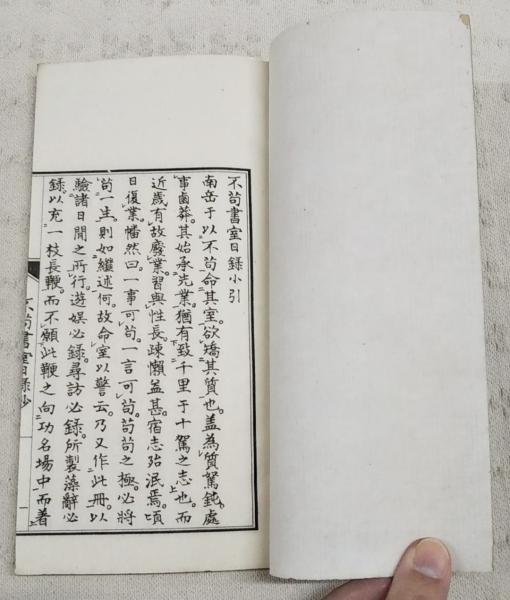 不苟書室日録小引
南岳于以不苟命其室。欲矯其質也。蓋為質駑鈍。處
事鹵莽。其始承先業。猶有致千里于十駕之志也。而
近歳有故廢業。習與性長。疎懶益甚。宿志殆泯焉。頃
日復業。幡然曰。一事可苟。一言可苟。苟苟之極。必將
苟一生。則如繼述何。故命室以警云。乃又作此冊。以
驗諸日間之所行。遊娯必録。尋訪必録。所製藻辭必
録。以充一枝長鞭。而不願此鞭之向功名場中而着
不苟書室日録鈔
一